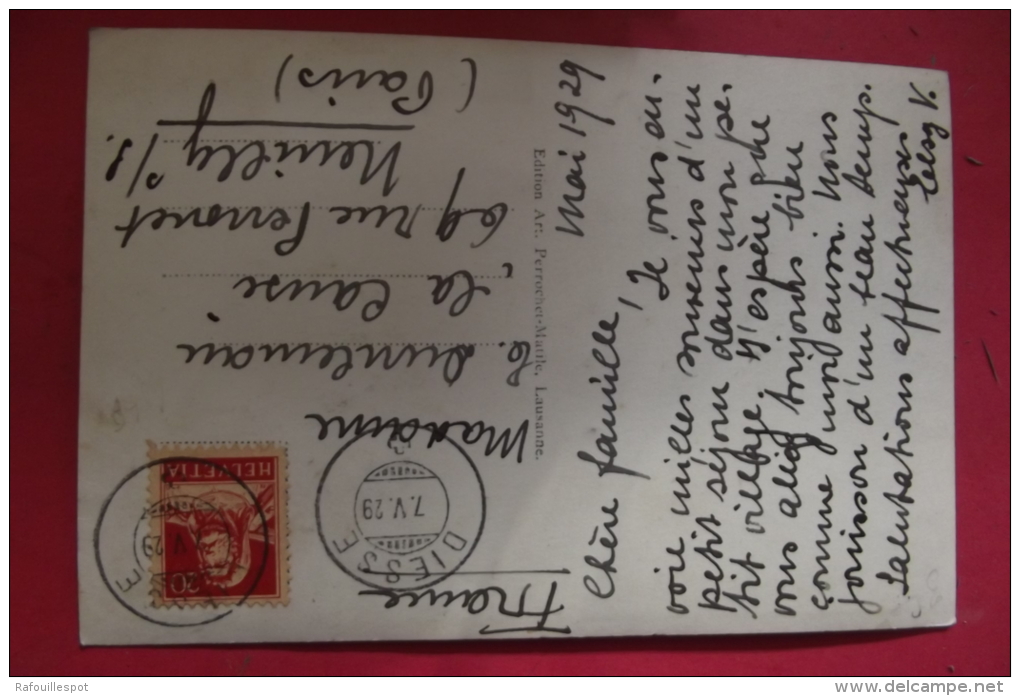 Mai 1929
Chère famille!
Je vous en-
voie milles souvenirs d'un
petit séjour dans mon pe-
tit village. J'espère que
vous aliez toujours bien
comme moi aussi. Nous
jouisson d'un beau temp.
Salutations affectueuses
Elsy V.
Edition Art. Perrochet-Matile, Lausanne.
Madame
La Cause
69 rue Perronet
Neuilly s/S.
(Paris)
France
HELVETIA
20
DIESSE
7.V.29
7.V.29
Rafouillespot
www.delcampe.net